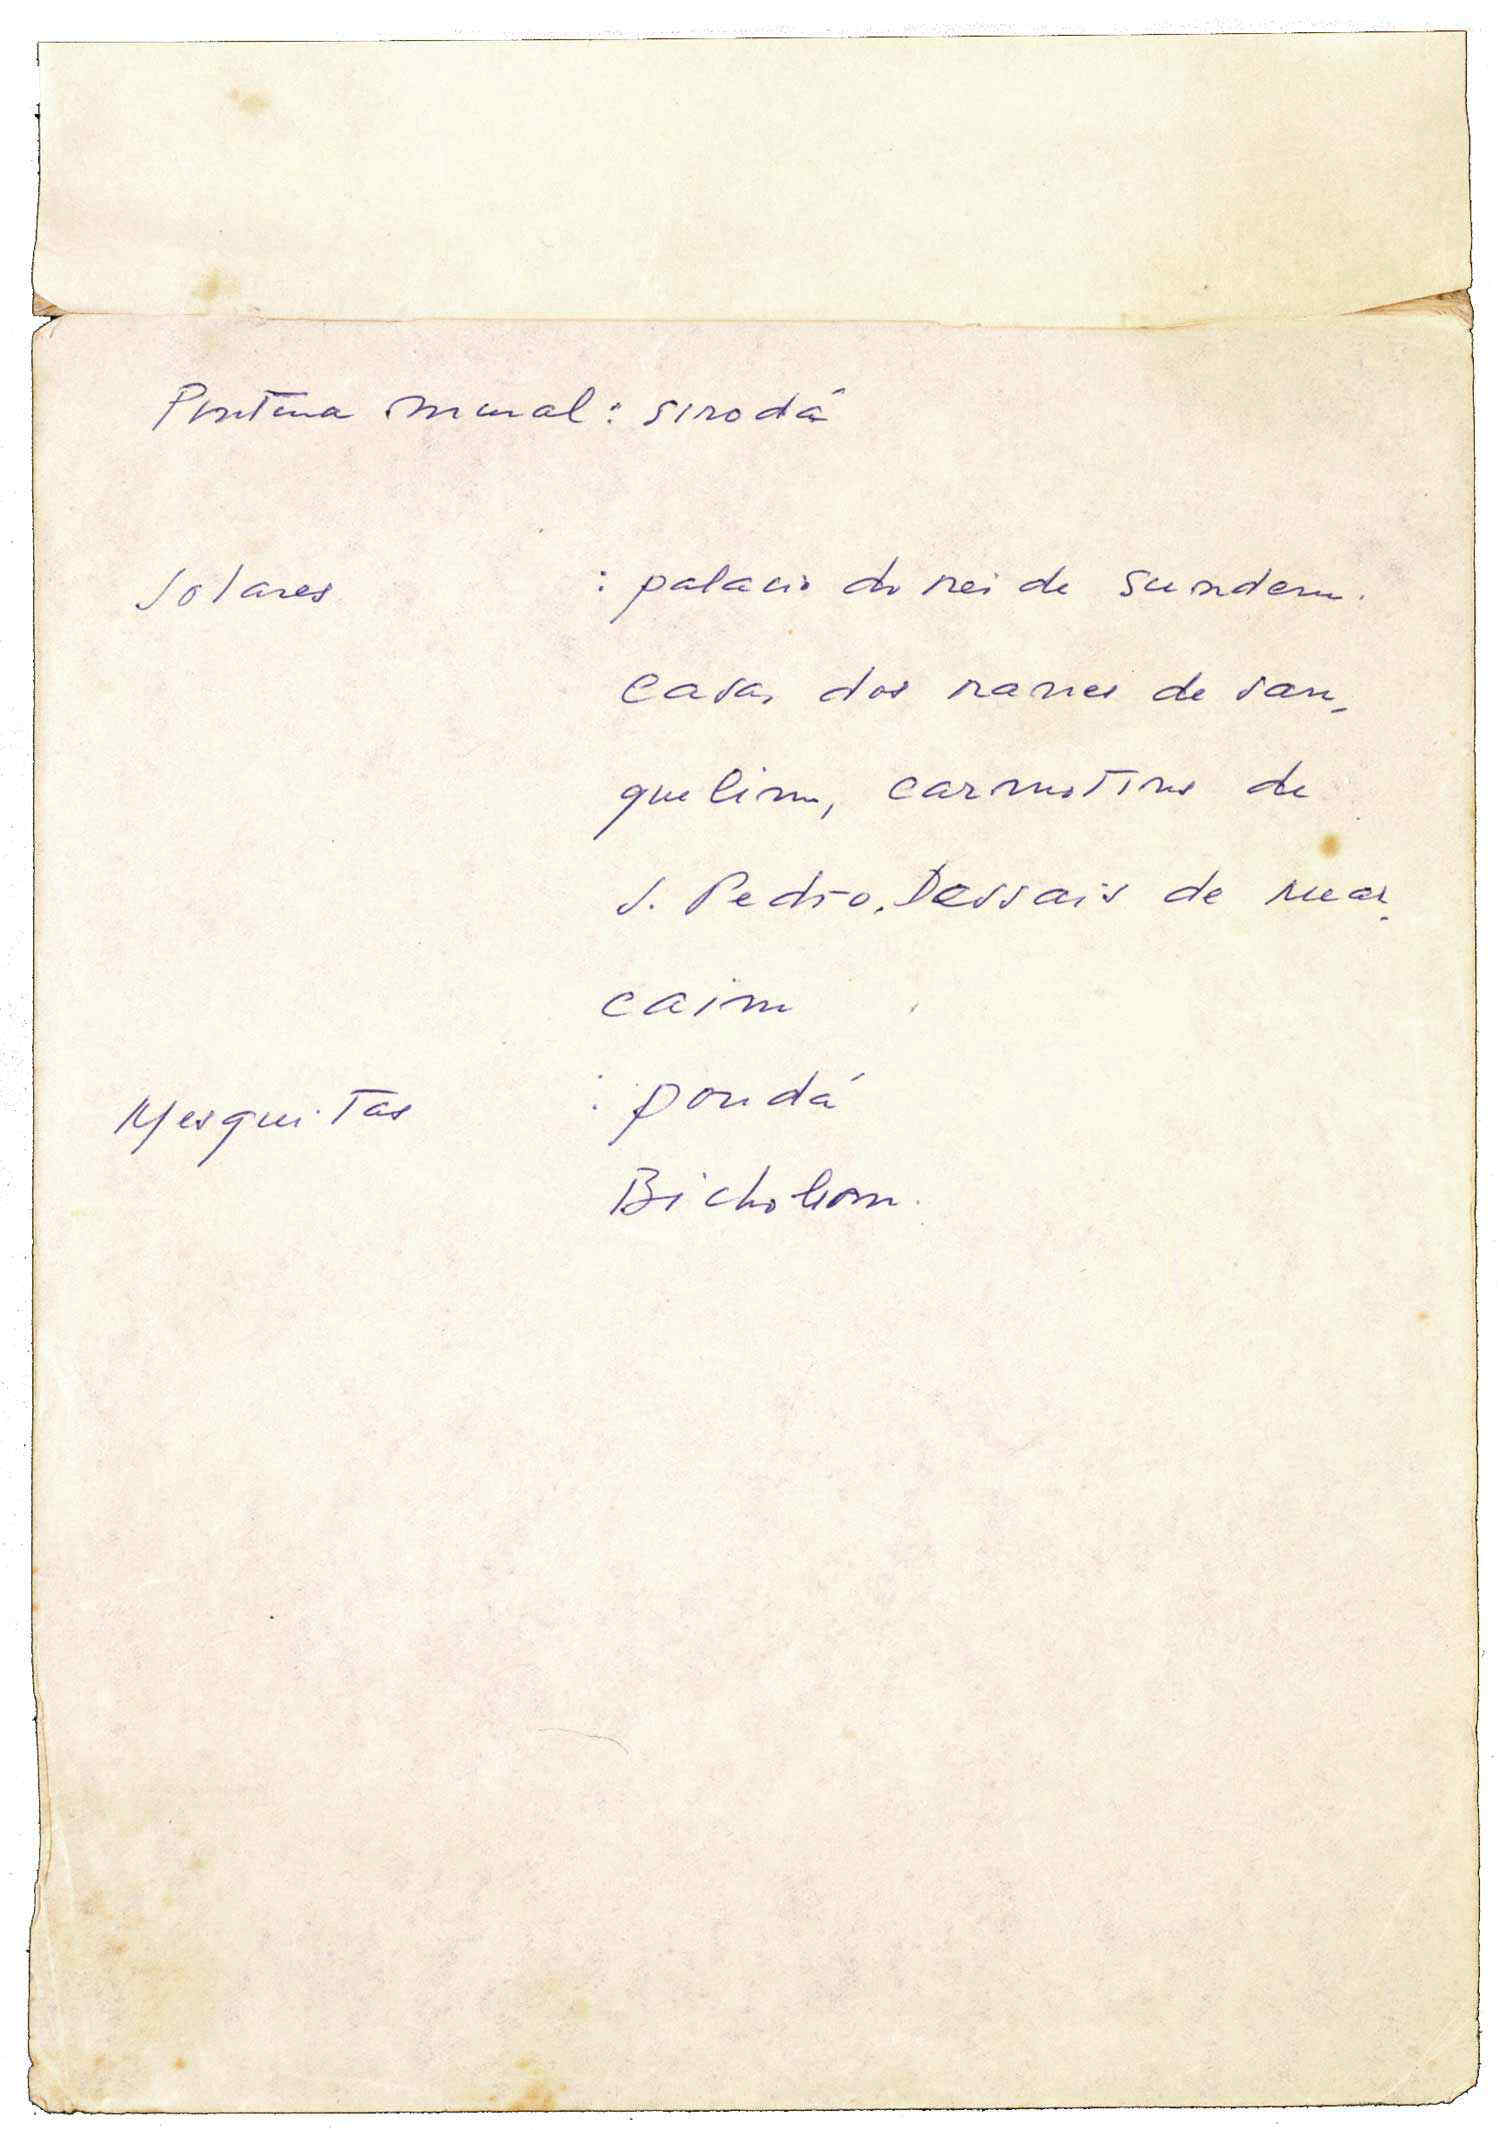 Pintura mural: sirodá
Solares : palacio do rei de Sundem.
casas dos ranes de san-
quelim, carmotins de
S. Pedro. Dessais de mar-
caim
Mesquitas : pondá
Bicholim.